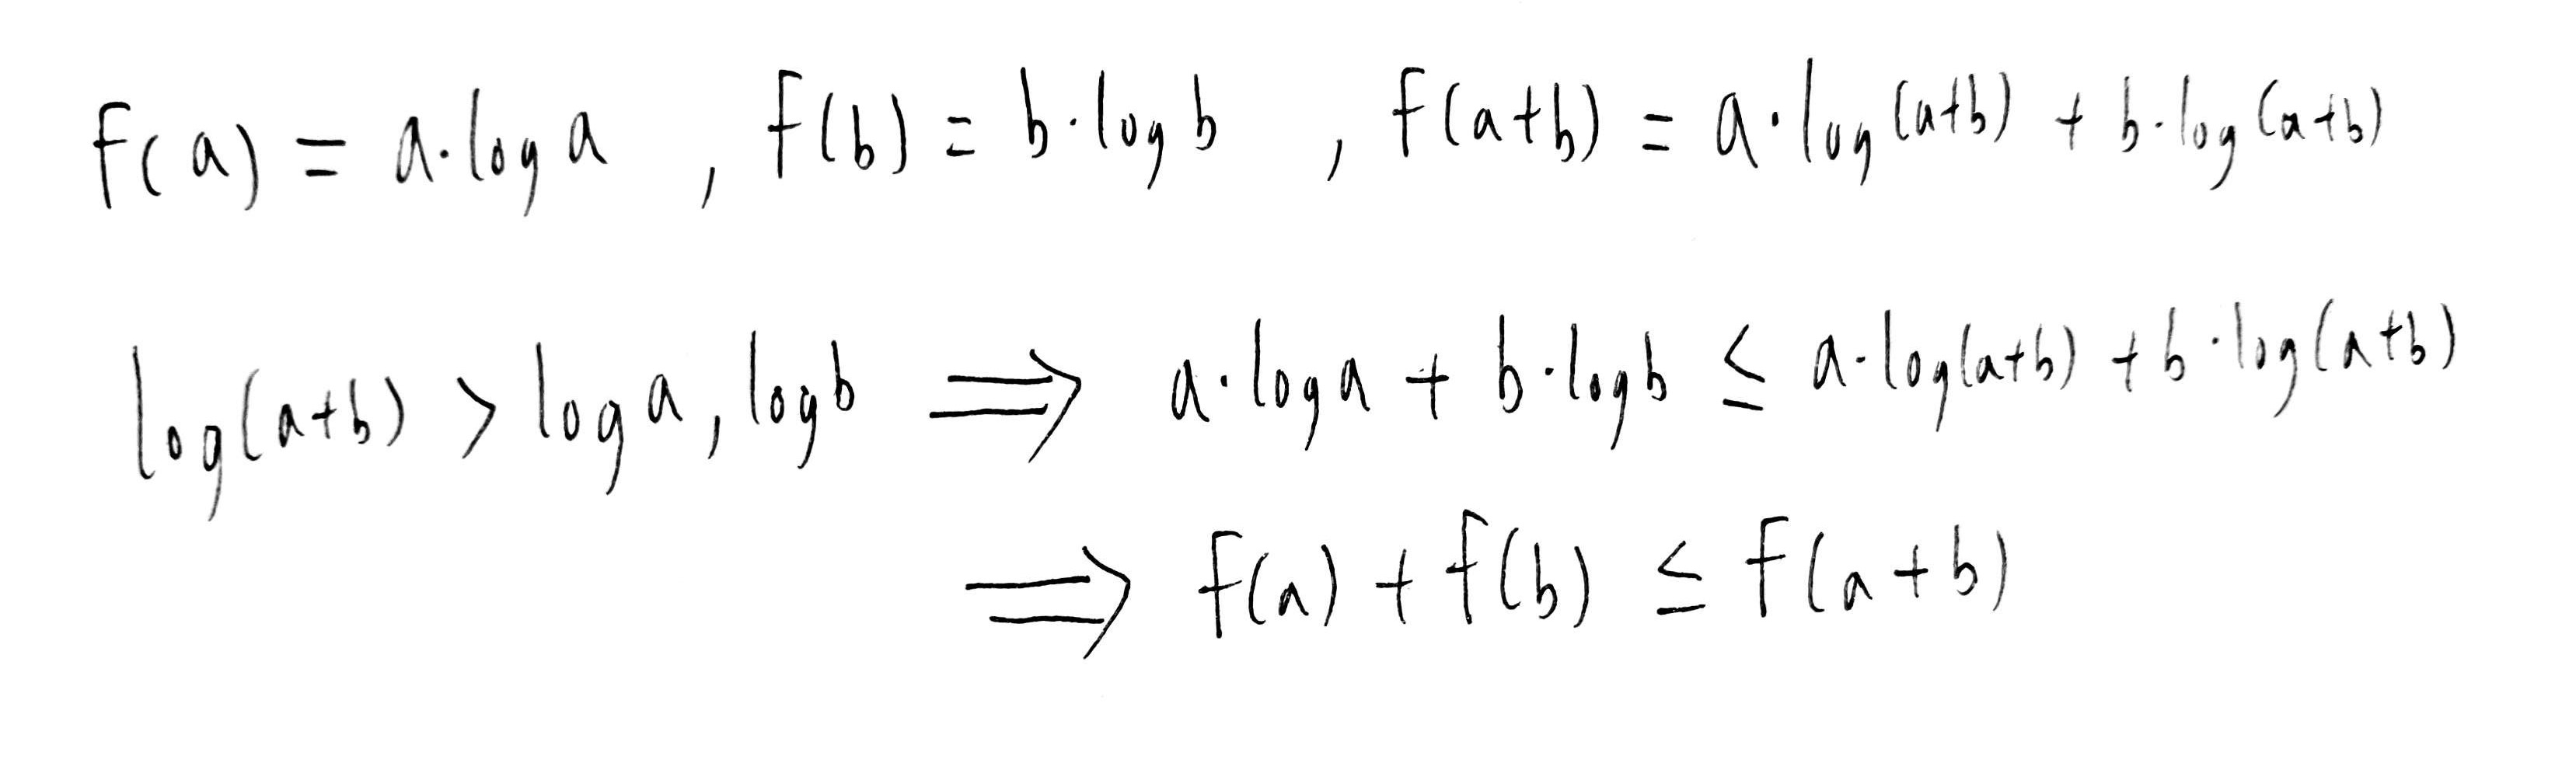 f(a) = a·log a , f(b) = b·log b , f(a+b) = a·log(a+b) + b·log(a+b)
log(a+b) > log a, log b ⟹ a·log a + b·log b ≤ a·log(a+b) + b·log(a+b)
⟹ f(a) + f(b) ≤ f(a+b)